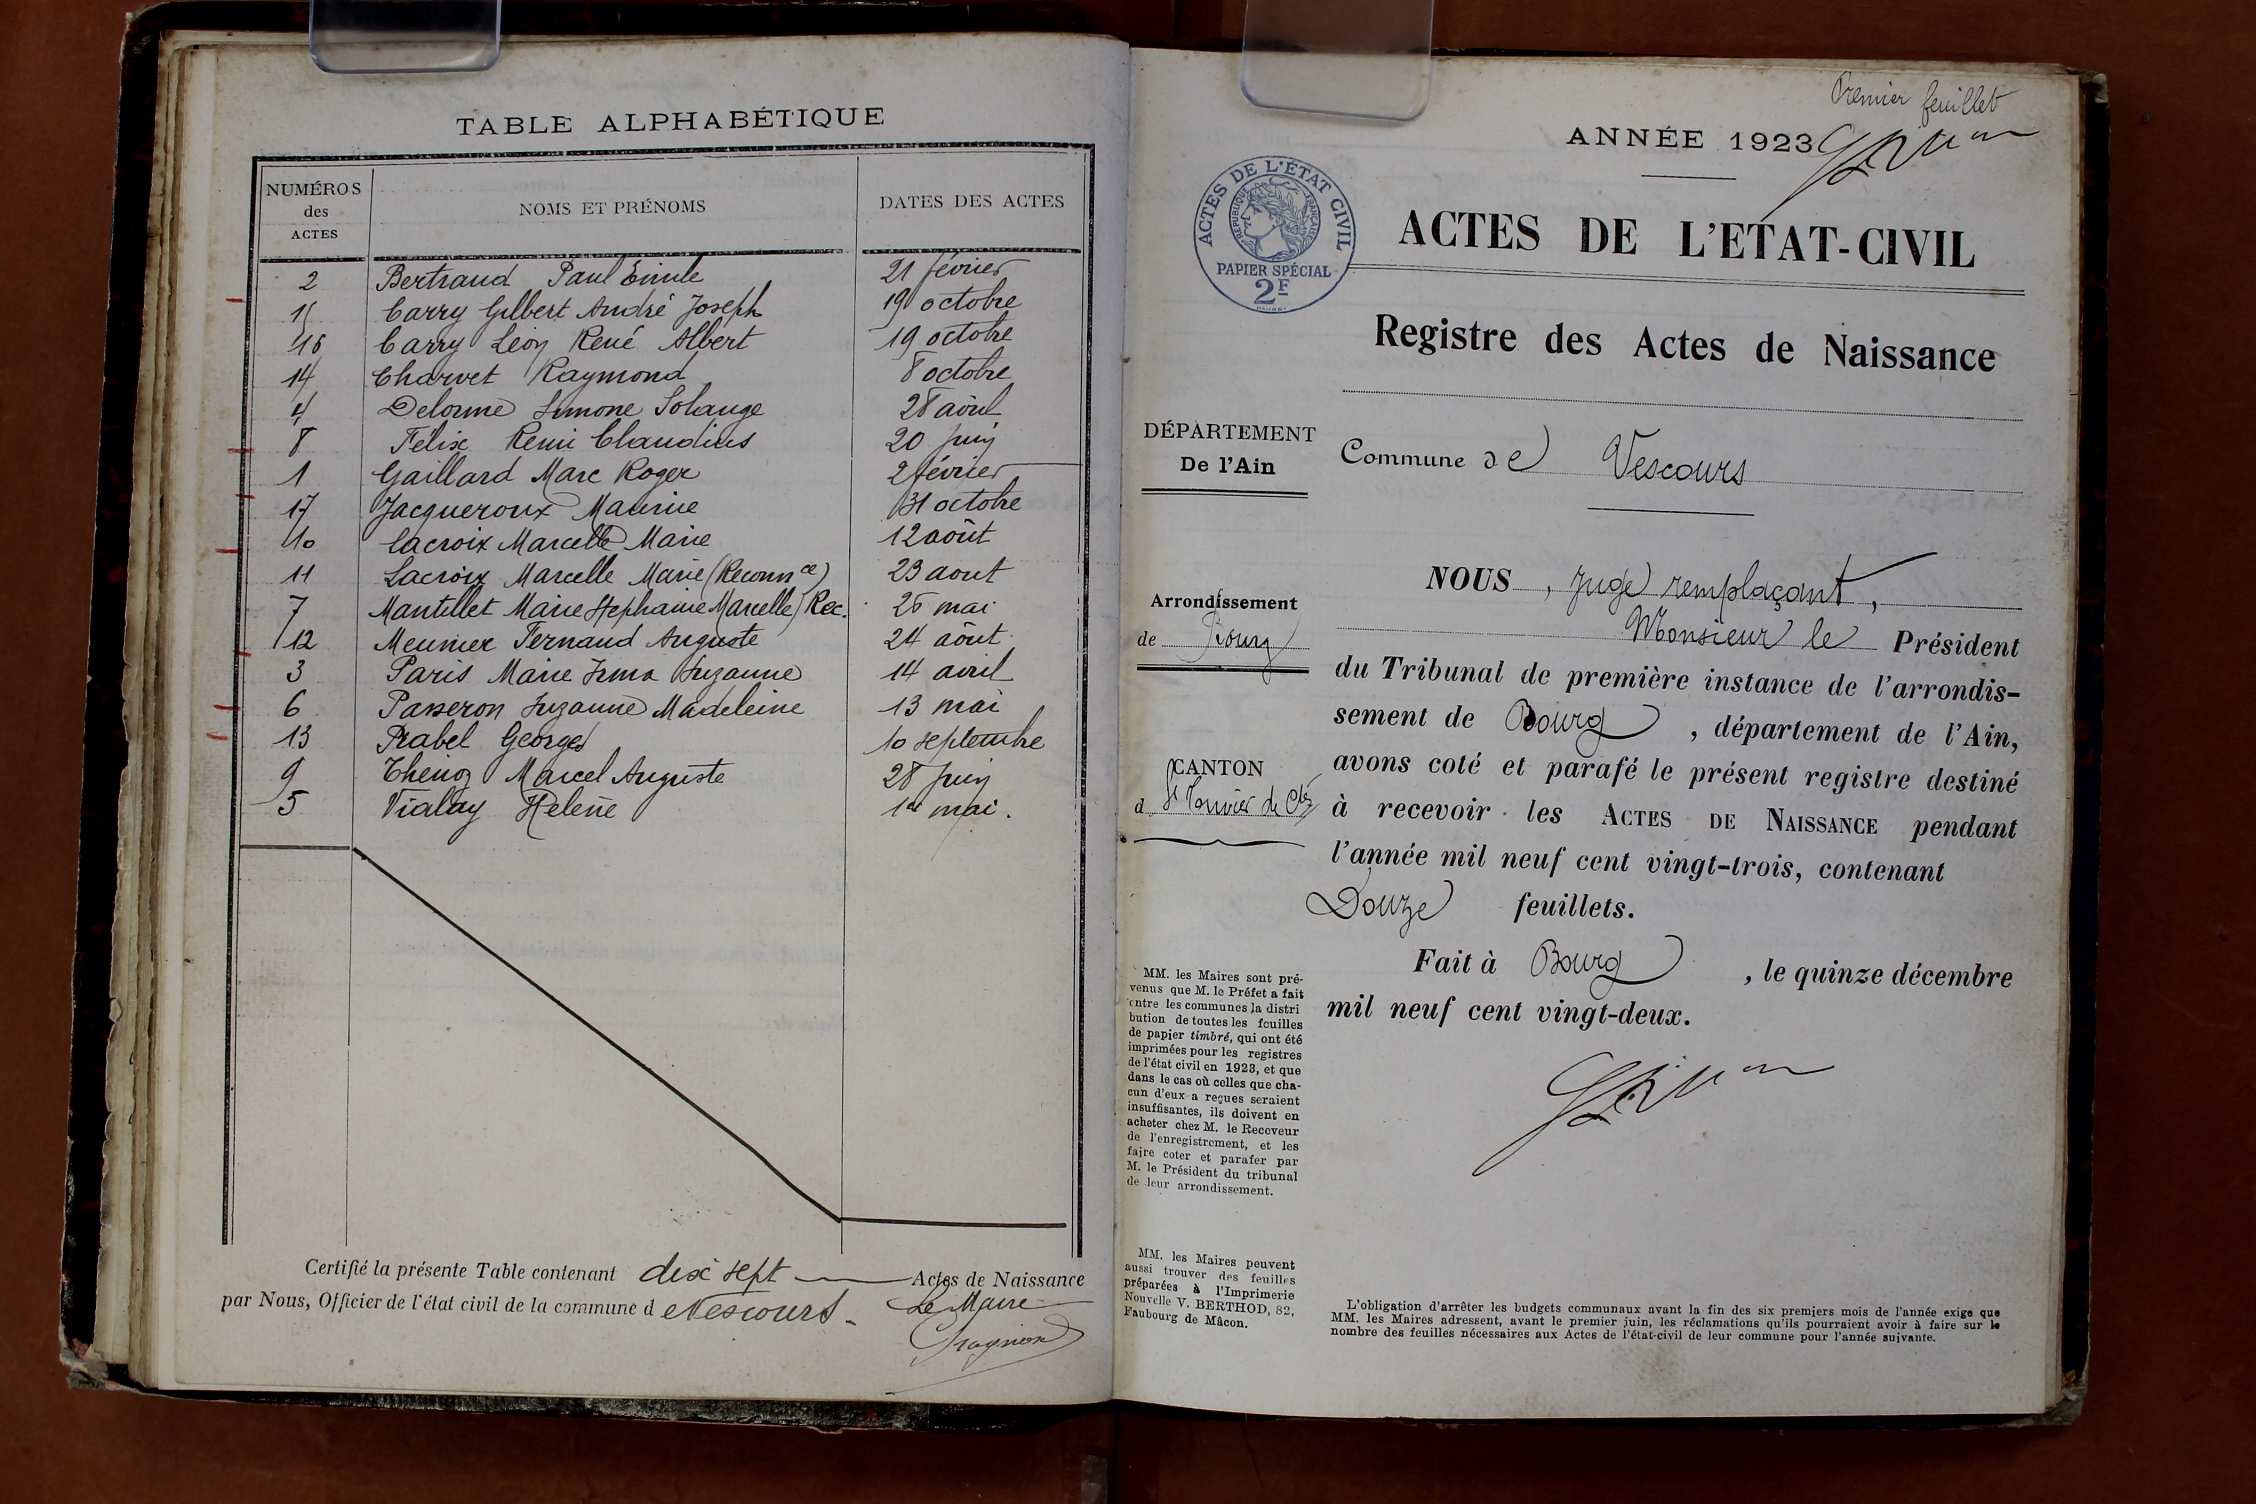 TABLE ALPHABÉTIQUE
NUMÉROS des ACTES NOMS ET PRÉNOMS DATES DES ACTES
2 Bertrand Paul Emile 21 février
15 Carry Gilbert André Joseph 19 octobre
16 Carry Léon René Albert 19 octobre
14 Charvet Raymond 8 octobre
4 Delorme Simone Solange 28 avril
8 Félix Remi Claudius 20 juin
1 Gaillard Marc Roger 2 février
17 Jacqueroux Maurice 31 octobre
10 Lacroix Marcelle Marie 12 août
11 Lacroix Marcelle Marie (Reconnce) 23 aout
7 Mantillet Marie Stephanie Marcelle) Rec. mai
12 Meunier Fernand Auguste 24 août
3 Paris Marie Irma Suzanne 14 avril
6 Passeron Suzanne Madeleine 13 mai
13 Rabel Georges 10 septembre
9 Thenoz Marcel Auguste 28 juin
5 Vialay Helène 1er mai.
Certifié la présente Table contenant dix sept Actes de Naissance
par Nous, Officier de l'état civil de la commune de Vescours.
Le Maire
Premier feuillet
ANNÉE 1923
ACTES DE L'ÉTAT CIVIL
RÉPUBLIQUE FRANÇAISE
PAPIER SPÉCIAL
2F
ACTES DE L'ETAT-CIVIL
Registre des Actes de Naissance
DÉPARTEMENT
De l'Ain
Commune de Vescours
Arrondissement
de Bourg
CANTON
d St Trivier de Ctes
NOUS, Juge remplaçant,
Monsieur le Président
du Tribunal de première instance de l'arrondis-
sement de Bourg, département de l'Ain,
avons coté et parafé le présent registre destiné
à recevoir les ACTES DE NAISSANCE pendant
l'année mil neuf cent vingt-trois, contenant
Douze feuillets.
Fait à Bourg, le quinze décembre
mil neuf cent vingt-deux.
MM. les Maires sont pré-
venus que M. le Préfet a fait
entre les communes la distri
bution de toutes les feuilles
de papier timbré, qui ont été
imprimées pour les registres
de l'état civil en 1923, et que
dans le cas où celles que cha-
cun d'eux a reçues seraient
insuffisantes, ils doivent en
acheter chez M. le Receveur
de l'enregistrement, et les
faire coter et parafer par
M. le Président du tribunal
de leur arrondissement.
MM. les Maires peuvent
aussi trouver des feuilles
préparées à l'Imprimerie
Nouvelle V. BERTHOD, 82,
Faubourg de Mâcon.
L'obligation d'arrêter les budgets communaux avant la fin des six premiers mois de l'année exige que
MM. les Maires adressent, avant le premier juin, les réclamations qu'ils pourraient avoir à faire sur le
nombre des feuilles nécessaires aux Actes de l'état-civil de leur commune pour l'année suivante.